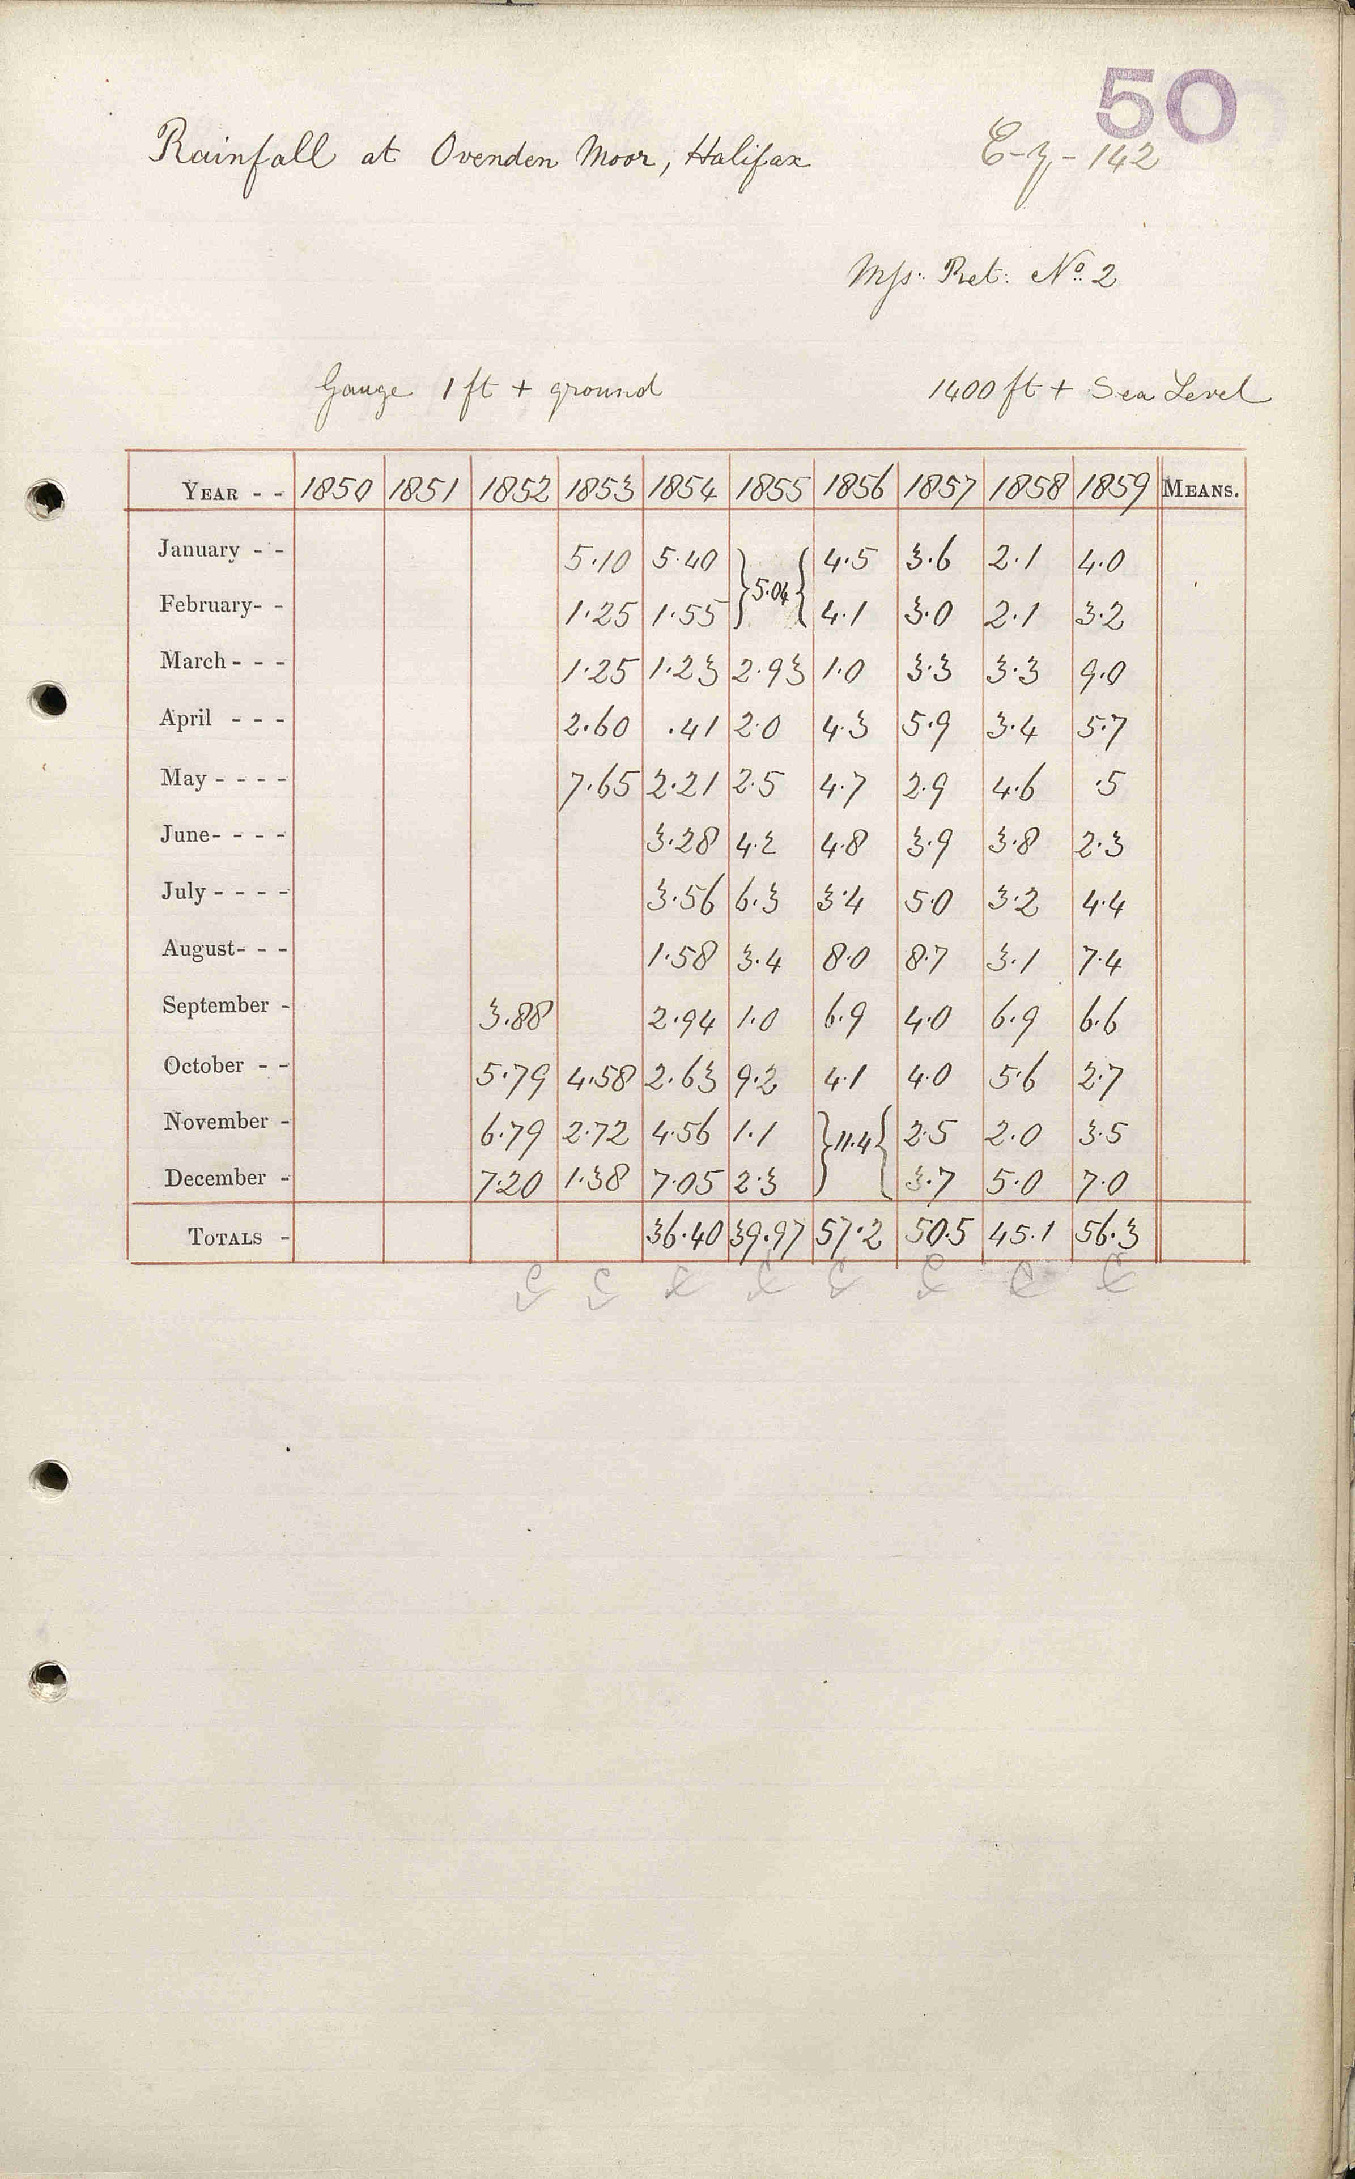 50
Rainfall at Ovenden Moor, Halifax
E-y-142
Mss. Ret: No. 2
Gauge 1 ft + ground 1400 ft + Sea Level
YEAR - - 1850 1851 1852 1853 1854 1855 1856 1857 1858 1859 MEANS.
January - - 5.10 5.40 } 5.04 { 4.5 3.6 2.1 4.0
February- - 1.25 1.55 4.1 3.0 2.1 3.2
March - - - 1.25 1.23 2.93 1.0 3.3 3.3 9.0
April - - - 2.60 .41 2.0 4.3 5.9 3.4 5.7
May - - - - 7.65 2.21 2.5 4.7 2.9 4.6 .5
June- - - - 3.28 4.2 4.8 3.9 3.8 2.3
July - - - - 3.56 6.3 3.4 5.0 3.2 4.4
August- - - 1.58 3.4 8.0 8.7 3.1 7.4
September - 3.88 2.94 1.0 6.9 4.0 6.9 6.6
October - - 5.79 4.58 2.63 9.2 4.1 4.0 5.6 2.7
November - 6.79 2.72 4.56 1.1 } 11.4 { 2.5 2.0 3.5
December - 7.20 1.38 7.05 2.3 3.7 5.0 7.0
TOTALS - 36.40 39.97 57.2 50.5 45.1 56.3